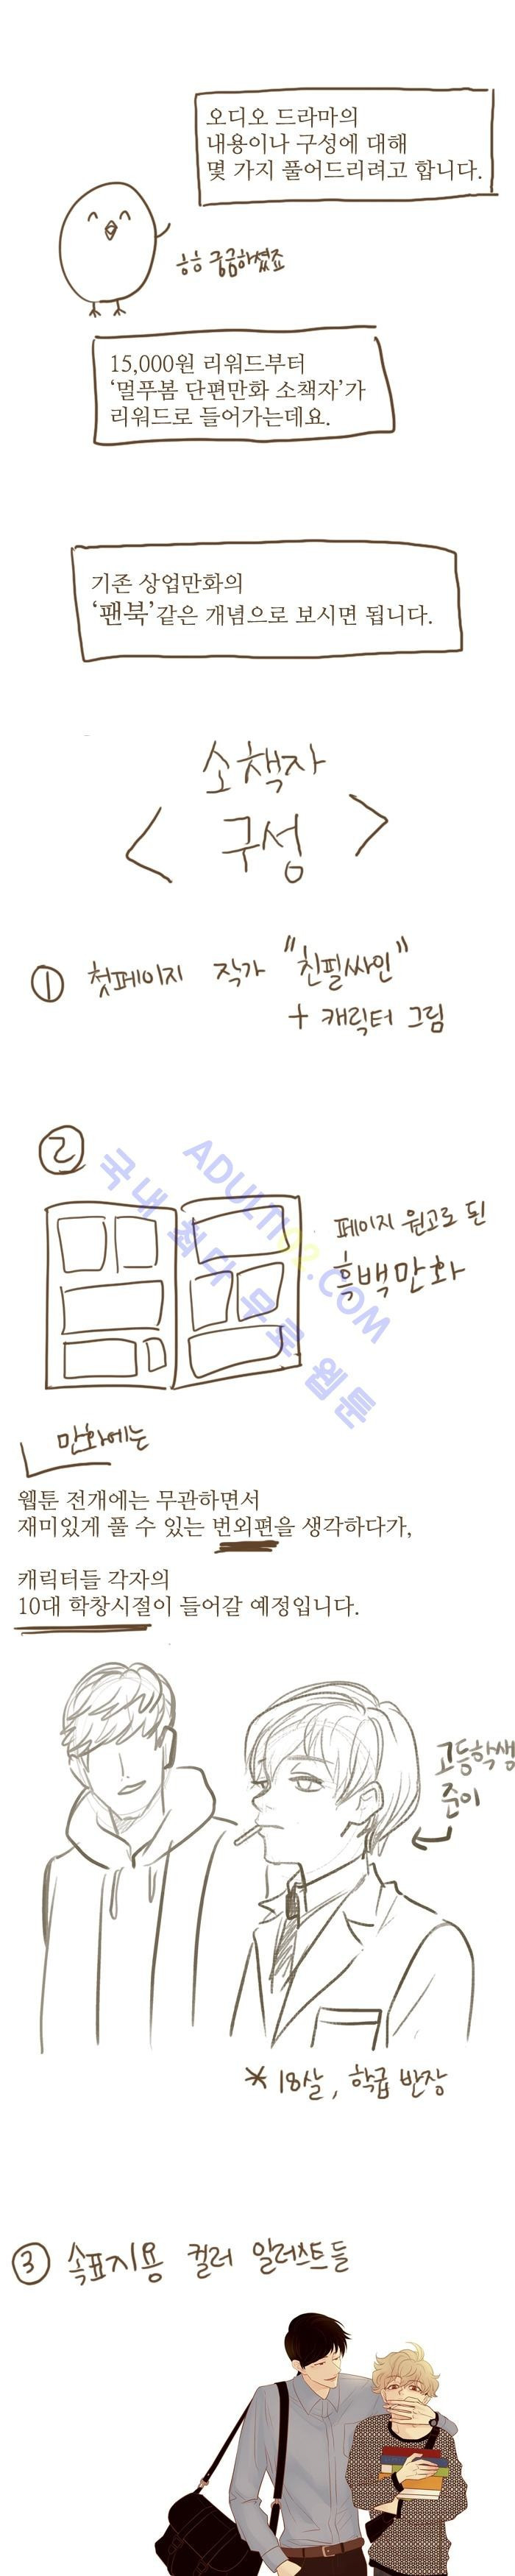 오디오 드라마의
내용이나 구성에 대해
몇 가지 풀어드리려고 합니다.
흐흐 궁금하셨죠
15,000원 리워드부터
‘멀푸봄 단편만화 소책자’가
리워드로 들어가는데요.
기존 상업만화의
‘팬북’같은 개념으로 보시면 됩니다.
소책자
< 구성 >
① 첫페이지 작가 "친필싸인"
+ 캐릭터 그림
②
페이지 원고로 된
흑백만화
ADULT102.COM
국내 최대 무료 웹툰
만화에는
웹툰 전개에는 무관하면서
재미있게 풀 수 있는 번외편을 생각하다가,
캐릭터들 각자의
10대 학창시절이 들어갈 예정입니다.
고등학생
준이
* 18살, 학급 반장
③ 속표지용 컬러 일러스트들